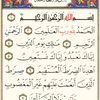 بِسْمِ اللَّهِ الرَّحْمَٰنِ الرَّحِيمِ
الْحَمْدُ لِلَّهِ رَبِّ الْعَالَمِينَ
الرَّحْمَٰنِ الرَّحِيمِ مَالِكِ يَوْمِ الدِّينِ
إِيَّاكَ نَعْبُدُ وَإِيَّاكَ نَسْتَعِينُ
اهْدِنَا الصِّرَاطَ الْمُسْتَقِيمَ
صِرَاطَ الَّذِينَ أَنْعَمْتَ عَلَيْهِمْ